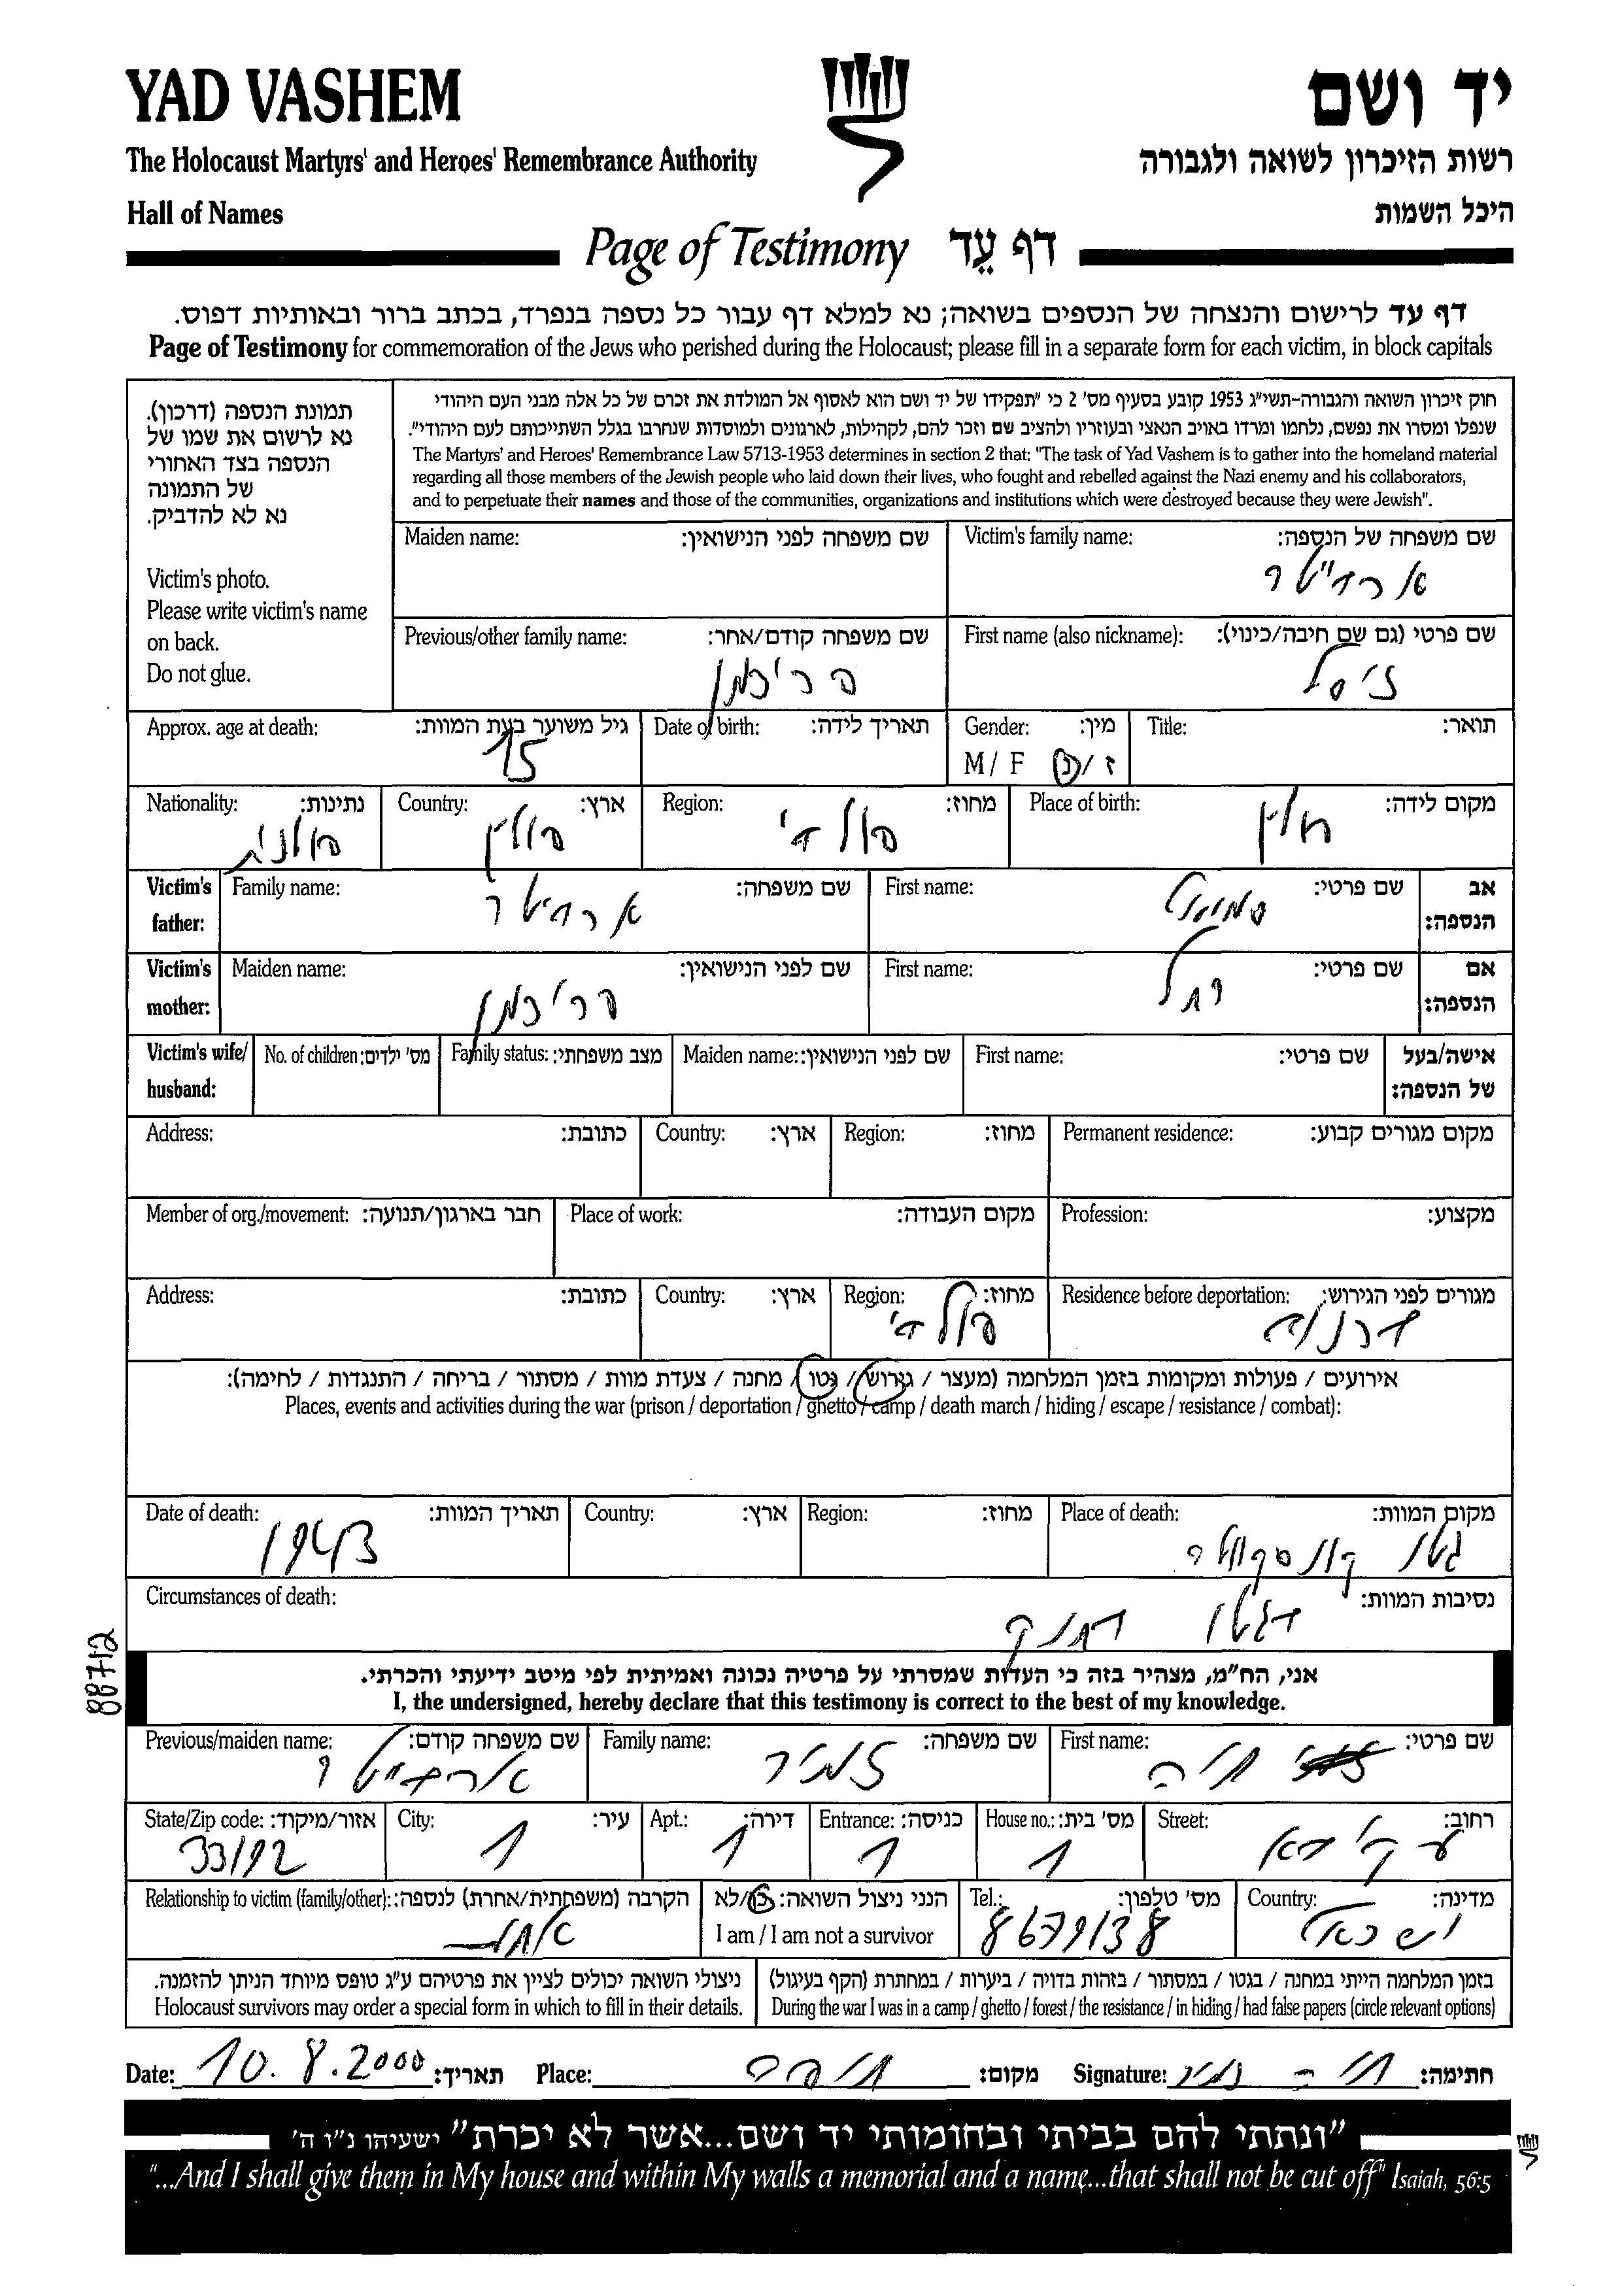 YAD VASHEM
יד ושם
The Holocaust Martyrs' and Heroes' Remembrance Authority
רשות הזיכרון לשואה ולגבורה
Hall of Names
היכל השמות
Page of Testimony דף עֵד
דף עד לרישום והנצחה של הנספים בשואה; נא למלא דף עבור כל נספה בנפרד, בכתב ברור ובאותיות דפוס.
Page of Testimony for commemoration of the Jews who perished during the Holocaust; please fill in a separate form for each victim, in block capitals
תמונת הנספה (דרכון).
נא לרשום את שמו של
הנספה בצד האחורי
של התמונה
נא לא להדביק.
Victim's photo.
Please write victim's name
on back.
Do not glue.
חוק זיכרון השואה והגבורה-תשי"ג 1953 קובע בסעיף מס' 2 כי "תפקידו של יד ושם הוא לאסוף אל המולדת את זכרם של כל אלה מבני העם היהודי
שנפלו ומסרו את נפשם, נלחמו ומרדו באויב הנאצי ובעוזריו ולהציב שם וזכר להם, לקהילות, לארגונים ולמוסדות שנחרבו בגלל השתייכותם לעם היהודי".
The Martyrs' and Heroes' Remembrance Law 5713-1953 determines in section 2 that: "The task of Yad Vashem is to gather into the homeland material
regarding all those members of the Jewish people who laid down their lives, who fought and rebelled against the Nazi enemy and his collaborators,
and to perpetuate their names and those of the communities, organizations and institutions which were destroyed because they were Jewish".
Maiden name: שם משפחה לפני הנישואין: Victim's family name: שם משפחה של הנספה:
Previous/other family name: שם משפחה קודם/אחר: First name (also nickname): שם פרטי (גם שם חיבה/כינוי):
פריכמן
ציסל
Approx. age at death: גיל משוער בעת המוות: Date of birth: תאריך לידה: Gender: מין: Title: תואר:
15
M / F ז / נ
Nationality: נתינות: Country: ארץ: Region: מחוז: Place of birth: מקום לידה:
פולנית פולין
Victim's father: Family name: שם משפחה: First name: שם פרטי: אב הנספה:
סמואל
Victim's mother: Maiden name: שם לפני הנישואין: First name: שם פרטי: אם הנספה:
פריכמן רחל
Victim's wife/ husband: No. of children: מס' ילדים: Family status: מצב משפחתי: Maiden name: שם לפני הנישואין: First name: שם פרטי: אישה/בעל של הנספה:
Address: כתובת: Country: ארץ: Region: מחוז: Permanent residence: מקום מגורים קבוע:
Member of org./movement: חבר בארגון/תנועה: Place of work: מקום העבודה: Profession: מקצוע:
Address: כתובת: Country: ארץ: Region: מחוז: Residence before deportation: מגורים לפני הגירוש:
אירועים / פעולות ומקומות בזמן המלחמה (מעצר / גירוש / גטו / מחנה / צעדת מוות / מסתור / בריחה / התנגדות / לחימה):
Places, events and activities during the war (prison / deportation / ghetto / camp / death march / hiding / escape / resistance / combat):
Date of death: תאריך המוות: Country: ארץ: Region: מחוז: Place of death: מקום המוות:
1943 גטו
Circumstances of death: נסיבות המוות:
88712
אני, הח"מ, מצהיר בזה כי העדות שמסרתי על פרטיה נכונה ואמיתית לפי מיטב ידיעתי והכרתי.
I, the undersigned, hereby declare that this testimony is correct to the best of my knowledge.
Previous/maiden name: שם משפחה קודם: Family name: שם משפחה: First name: שם פרטי:
זמיר חיה
State/Zip code: אזור/מיקוד: City: עיר: Apt.: דירה: Entrance: כניסה: House no.: מס' בית: Street: רחוב:
33192 1 1 1 1
Relationship to victim (family/other): הקרבה (משפחתית/אחרת) לנספה: הנני ניצול השואה: כן/לא Tel.: מס' טלפון: Country: מדינה:
I am / I am not a survivor
8679138 ישראל
ניצולי השואה יכולים לציין את פרטיהם ע"ג טופס מיוחד הניתן להזמנה.
Holocaust survivors may order a special form in which to fill in their details.
בזמן המלחמה הייתי במחנה / בגטו / במסתור / בזהות בדויה / ביערות / במחתרת (הקף בעיגול)
During the war I was in a camp / ghetto / forest / the resistance / in hiding / had false papers (circle relevant options)
Date: 10.8.2000 תאריך: Place: חיפה מקום: Signature: חתימה:
"ונתתי להם בביתי ובחומותי יד ושם...אשר לא יכרת" ישעיהו נ"ו ה'
"...And I shall give them in My house and within My walls a memorial and a name...that shall not be cut off" Isaiah, 56:5